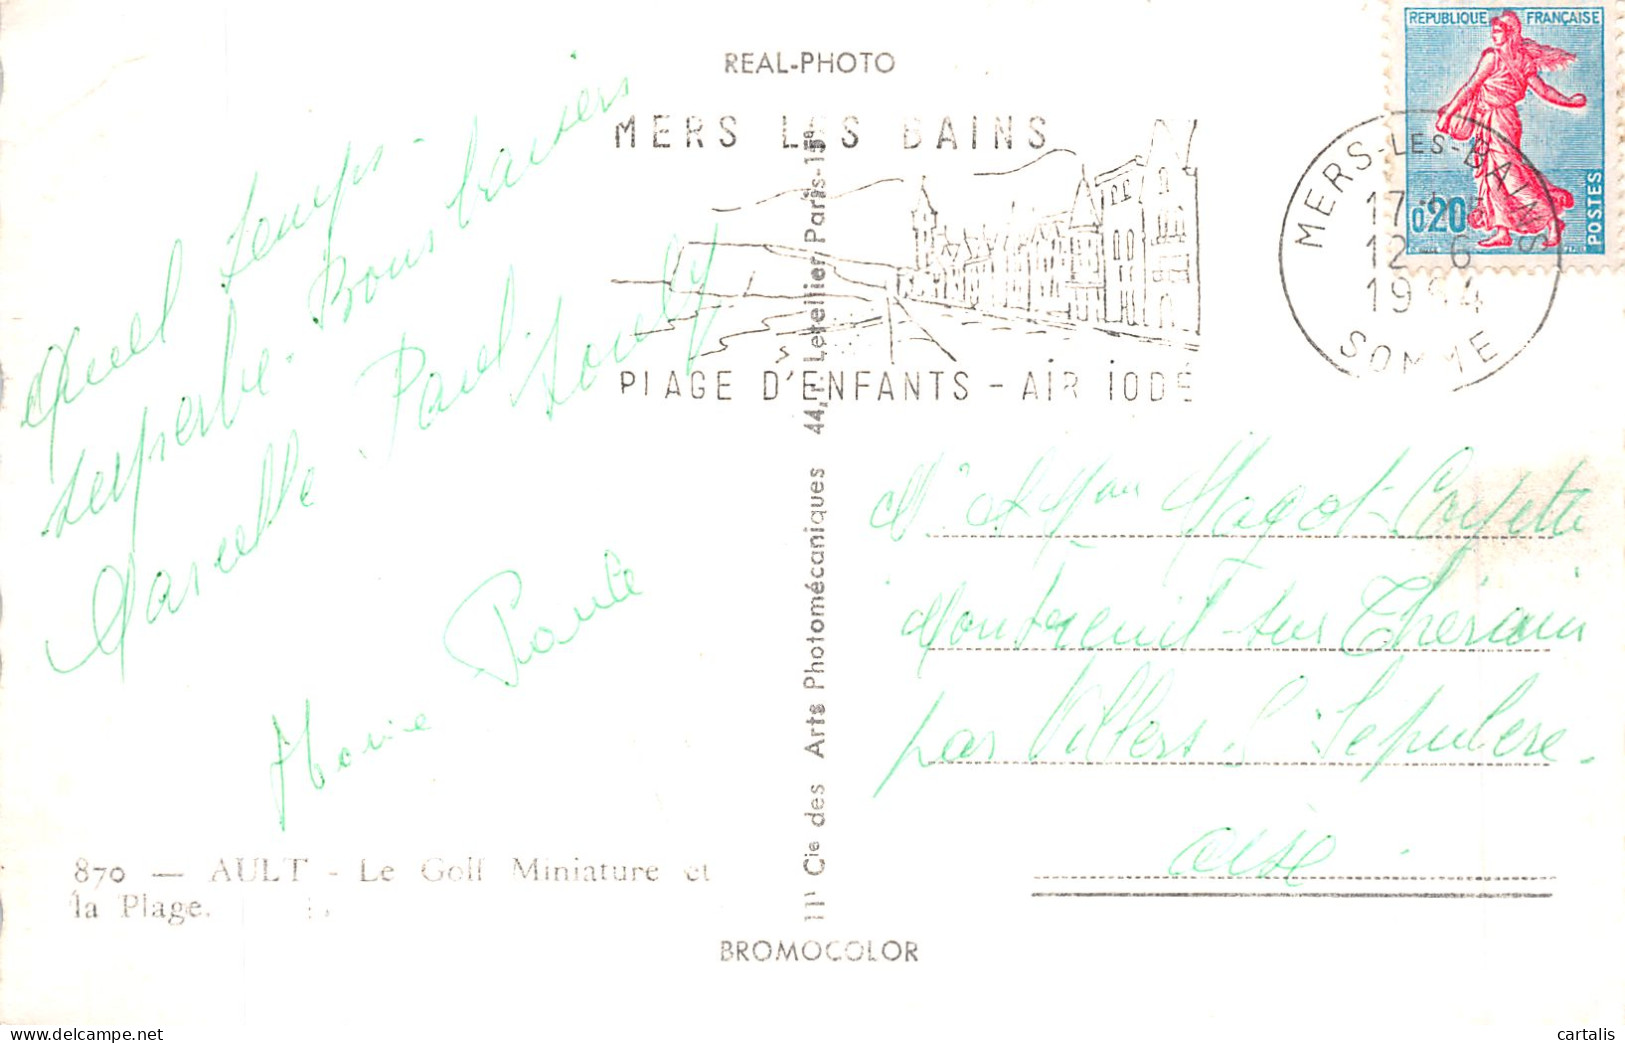 REAL-PHOTO
MERS LES BAINS
PLAGE D'ENFANTS - AÏR IODÉ
REPUBLIQUE FRANÇAISE
0,20
POSTES
MERS-LES-BAINS
17
12-6
19 4
SOMME
Quel temps
superbe. Bons baisers
Marcelle Paul
Marie Paule
Mr et Mme Magot-Coyette
Montreuil-sur Thérain
par Villers S. Sepulcre.
Oise.
870 — AULT - Le Golf Miniature et
la Plage.
Cie des Arts Photomécaniques 44, r. Letellier, Paris-15e
BROMOCOLOR
cartalis